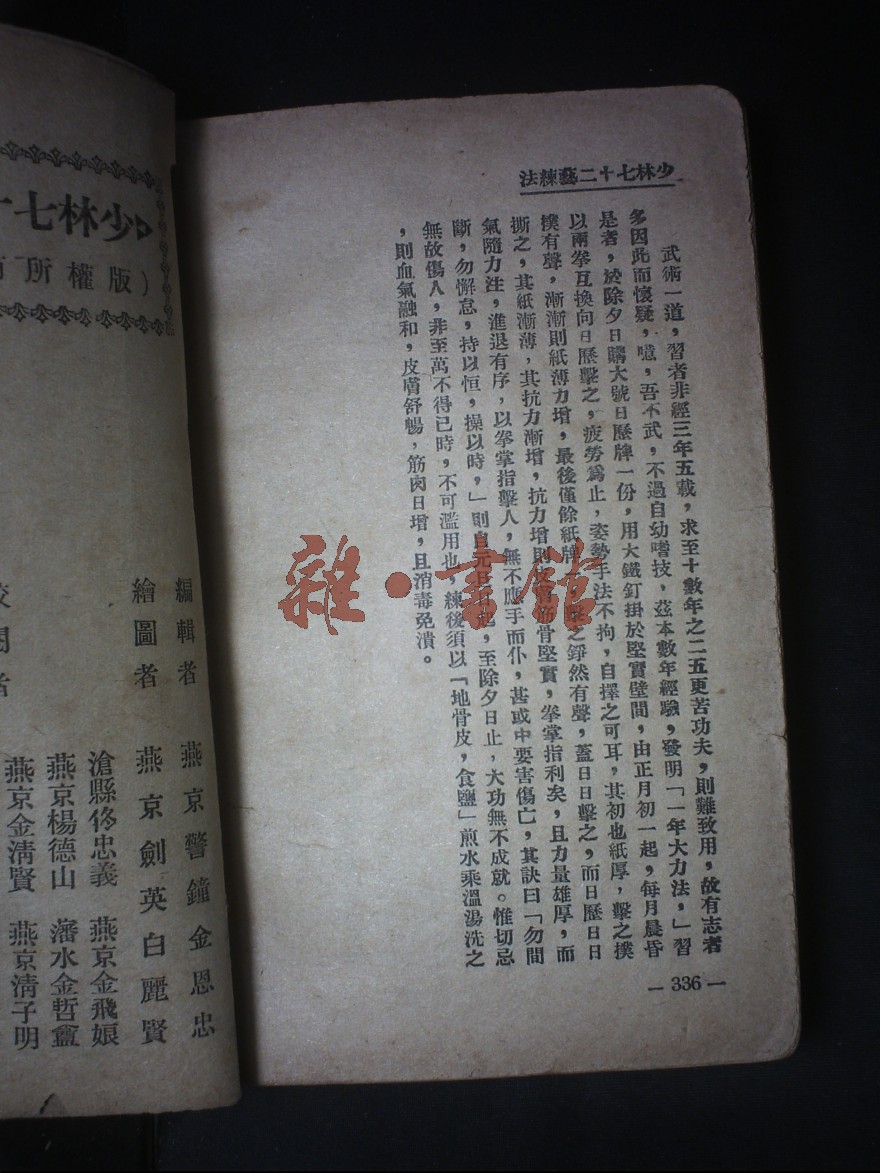 少林七十二藝練法
武術一道，習者非經三年五載，求至十數年之二五更苦功夫，則難致用，故有志者
多因此而懷疑，噫，吾不武，不過自幼嗜技，茲本數年經驗，發明「一年大力法，」習
是者，於除夕日購大號日歷牌一份，用大鐵釘掛於堅實壁間，由正月初一起，每月晨昏
以兩拳互換向日歷擊之，疲勞爲止，姿勢手法不拘，自擇之可耳，其初也紙厚，擊之撲
撲有聲，漸漸則紙薄力增，最後僅餘紙牌，擊之錚然有聲，蓋日日擊之，而日歷日日
撕之，其紙漸薄，其抗力漸增，抗力增則皮膚筋骨堅實，拳掌指利矣，且力量雄厚，而
氣隨力注，進退有序，以拳掌指擊人，無不應手而仆，甚或中要害傷亡，其訣曰「勿間
斷，勿懈怠，持以恒，操以時，」則自元旦日起，至除夕日止，大功無不成就。惟切忌
無故傷人，非至萬不得已時，不可濫用也，練後須以「地骨皮，食鹽」煎水乘溫湯洗之
，則血氣融和，皮膚舒暢，筋肉日增，且消毒免潰。
— 336 —
少林七十
版權所有
編輯者 燕京警鐘金恩忠
繪圖者 燕京劍英白麗賢
滄縣佟忠義 燕京金飛娠
燕京楊德山 瀋水金哲盦
校閱者 燕京金淸賢 燕京淸子明
雜·書館